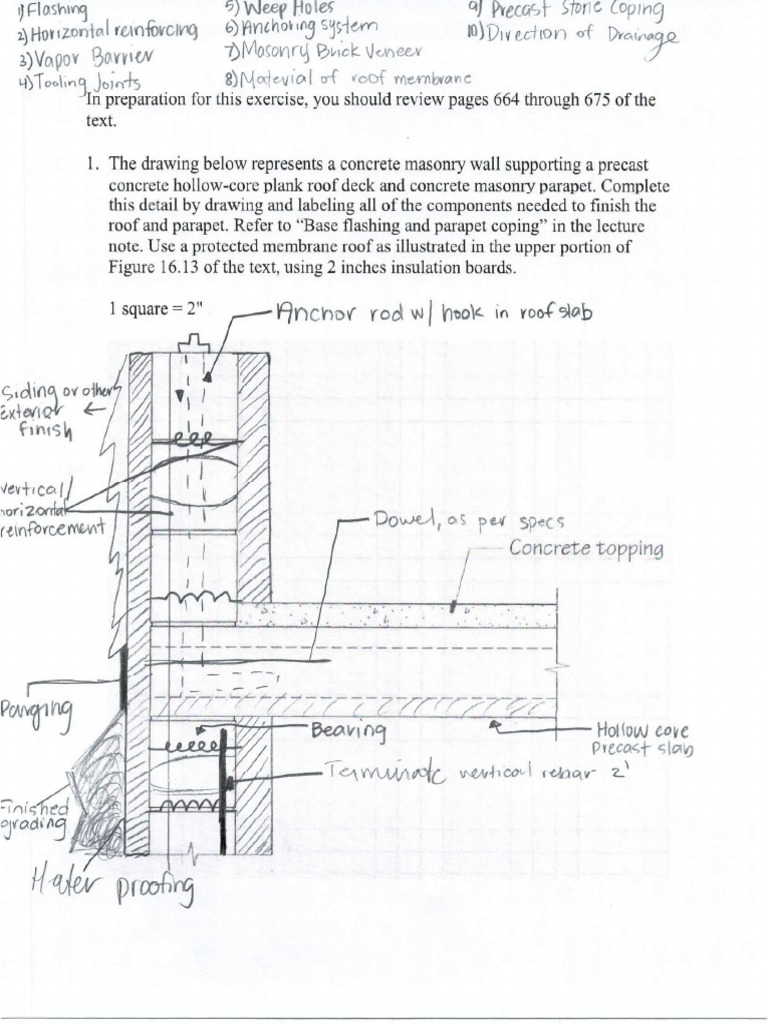 1) Flashing
2) Horizontal reinforcing
3) Vapor Barrier
4) Tooling Joints
5) Weep Holes
6) Anchoring system
7) Masonry Brick Veneer
8) Material of roof membrane
9) Precast Stone Coping
10) Direction of Drainage
In preparation for this exercise, you should review pages 664 through 675 of the
text.
1. The drawing below represents a concrete masonry wall supporting a precast
concrete hollow-core plank roof deck and concrete masonry parapet. Complete
this detail by drawing and labeling all of the components needed to finish the
roof and parapet. Refer to “Base flashing and parapet coping” in the lecture
note. Use a protected membrane roof as illustrated in the upper portion of
Figure 16.13 of the text, using 2 inches insulation boards.
1 square = 2"
Anchor rod w/ hook in roof slab
Siding or other
Exterior
finish
vertical/
horizontal
reinforcement
Dowel, as per specs
Concrete topping
Parging
Bearing
Hollow core
Precast slab
Terminate vertical rebar 2'
Finished
grading
Water proofing